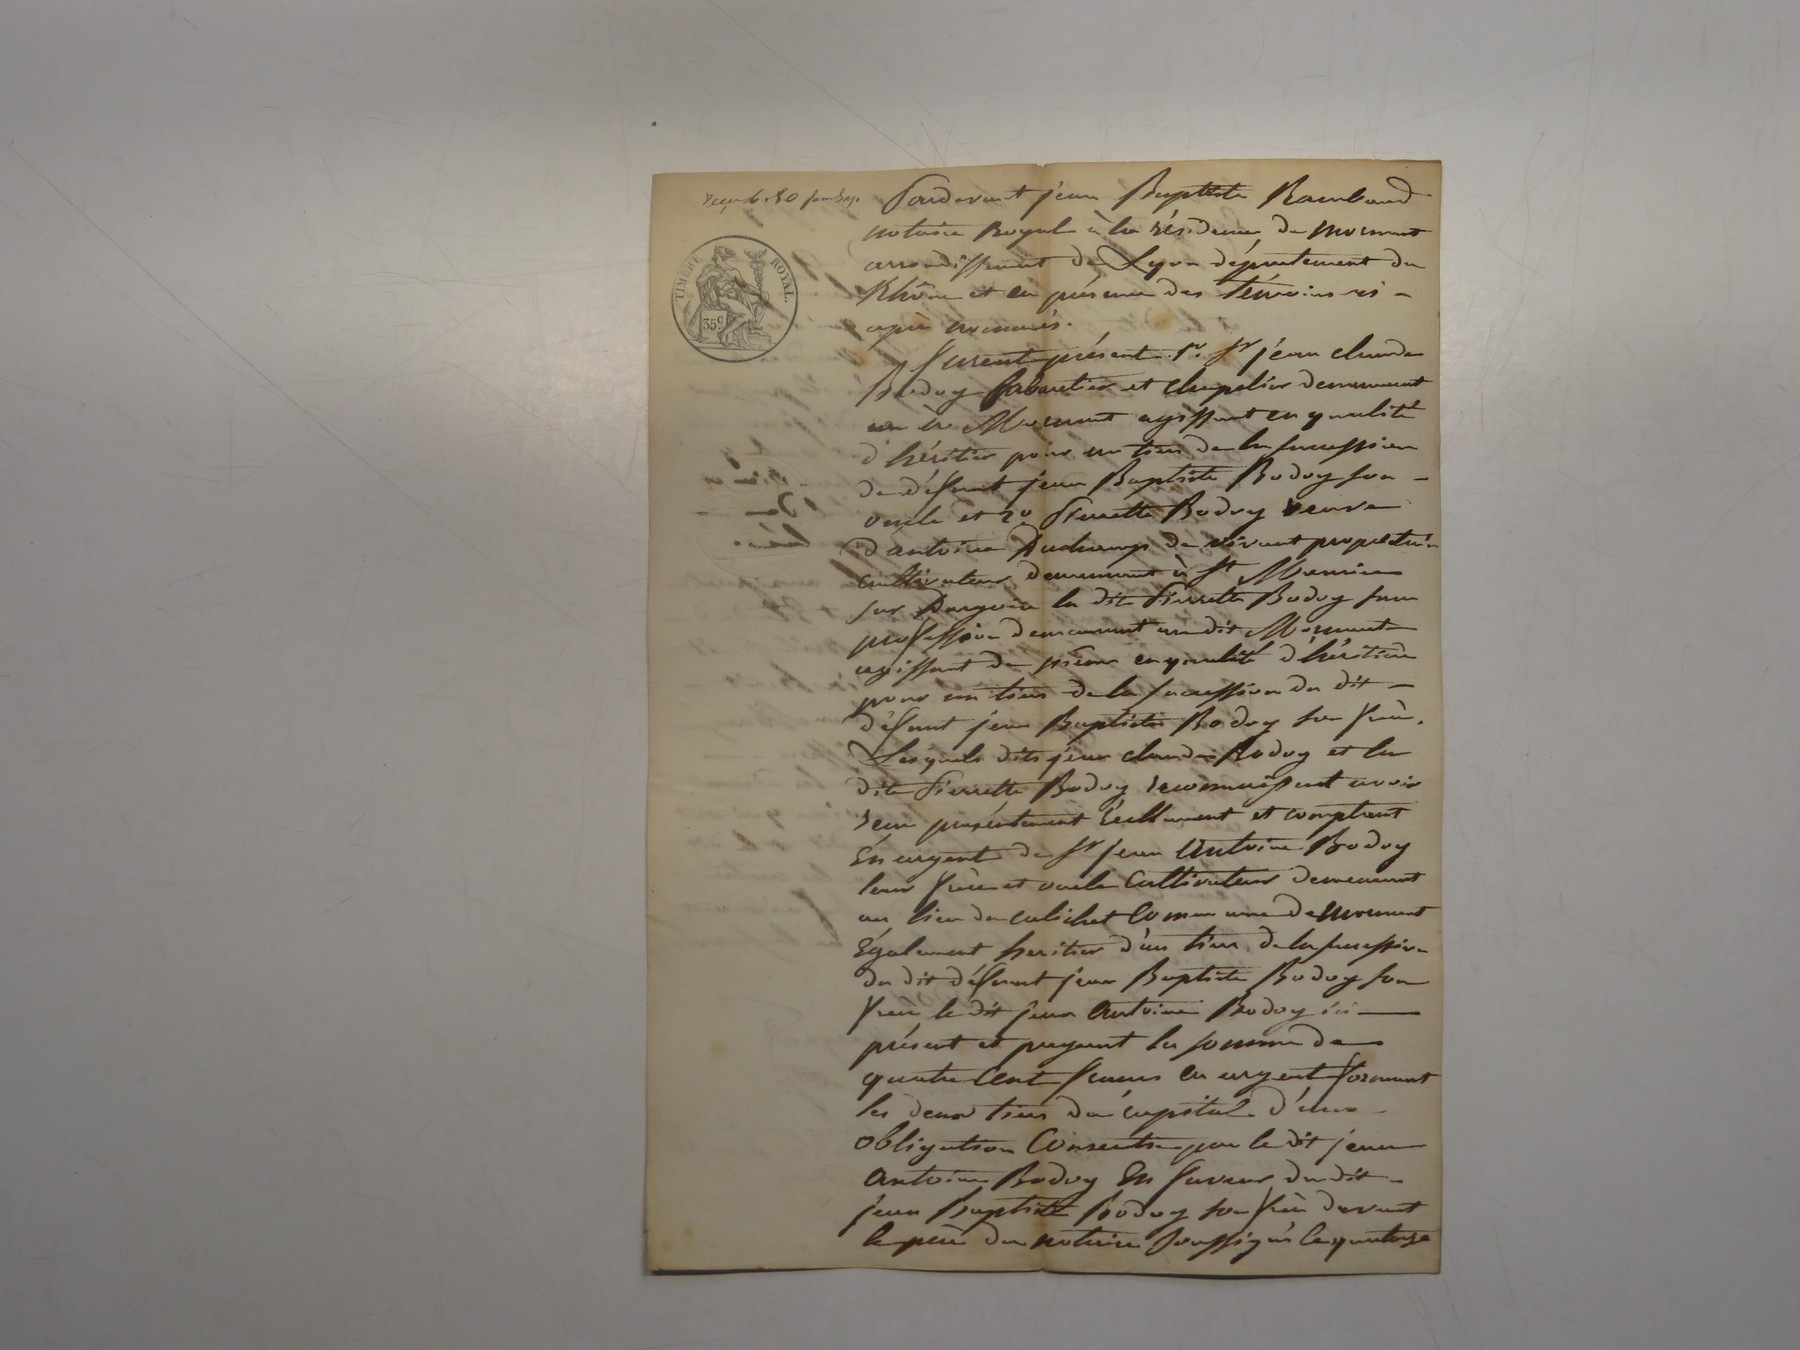 Pardevant jean Baptiste Rambaud
notaire Royal à la résidence de mornant
arrondissement de Lyon département du
Rhône et en présence des témoins ci -
après nommés.
TIMBRE ROYAL.
35 c
furent présent 1°. Sr jean claude
Bodoy Sabautier et chapelier demeurant
à Mornant agissant en qualité
d'héritier pour un tiers de la succession
de défunt jean Baptiste Bodoy son -
oncle et 2° Pierrette Bodoy veuve
d'antoine Duchamp de vivant propriétaire
cultivateur demeurant à St Maurice
sur Dargoire la dite Pierrette Bodoy sans
profession demeurant au dit Mornant
agissant de même en qualité d'héritière
pour un tiers de la succession du dit -
défunt jean Baptiste Bodoy son frère.
Lesquels dits jean claude Bodoy et la
dite Pierrette Bodoy reconnaissent avoir
reçu présentement réellement et comptant
En argent de Sr jean Antoine Bodoy
leur frère et oncle Cultivateur demeurant
au lieu du calichet Commune de Mornant
Également heritier d'un tiers de la succession
du dit défunt jean Baptiste Bodoy son
frère le dit jean Antoine Bodoy ici
présent et payant la somme de
quatre Cent francs en argent formant
les deux tiers du capital d'une -
obligation Consentie par le dit jean
Antoine Bodoy En faveur du dit -
jean Baptiste Bodoy son frère devant
le père du notaire soussigné le quatorze